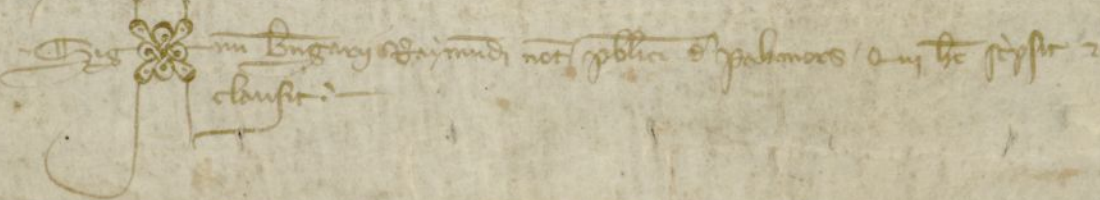 Sig num Bn̄garij Raymundi not̄ publici d̄ palamors qui hec sc̄psit ⁊
clausit.